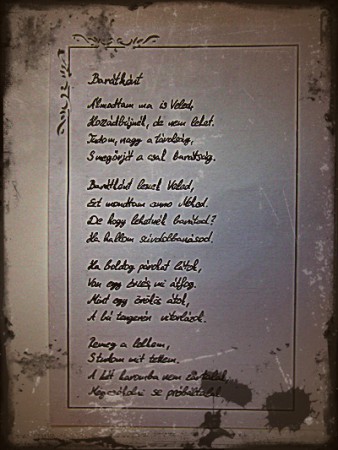 Barátként
Álmodtam ma is Veled,
Hozzádbújnék, de nem lehet.
Tudom, nagy a távolság,
S megőrjít a csal barátság.
Barátként leszek Veled,
Ezt mondtam anno Néked.
De hogy lehetnék barátod?
Ha hallom szívdobbanásod.
Ha boldog párokat látok,
Van egy érzés, mi átfog.
Mint egy örökös átok,
A bú tengerén vitorlázok.
Remeg a lelkem,
S tudom mit tettem.
A két karomba nem
se próbáltalak